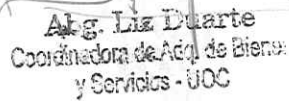 Abg. Liz Duarte
Coordinadora de Adq. de Bienes
y Servicios - UOC